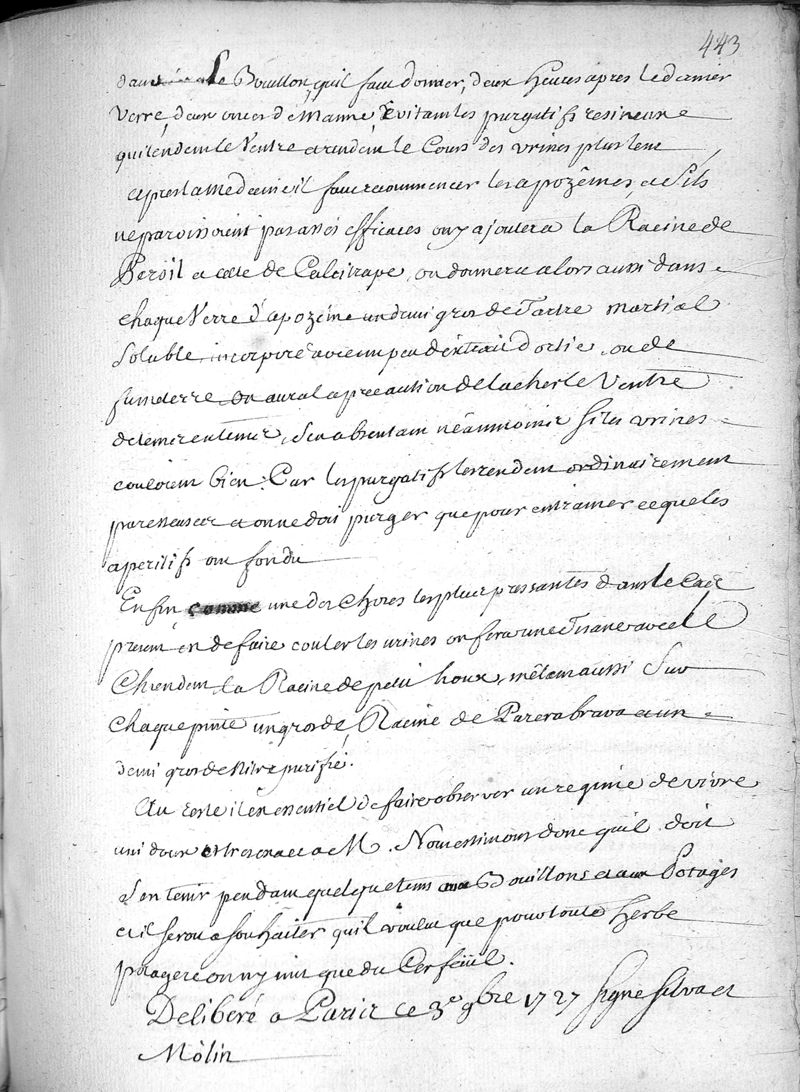 443
dans le Bouillon, quil faut donner, deux heures apres le dernier
Verre, deux onces de Manne Evitant les purgatifs resineux
qui tendent le Ventre et rendent le Cours des vrines plus lent
apres la Medecine il faut recommencer les apozêmes, et sils
ne paroissoient pas assés efficaces on y ajoutera la Racine de
Persil et celle de Calcitrape, on donnera alors aussi dans
chaque Verre d'apozême un demi gros de Tartre martial
soluble, incorporé avec un peu d'extrait d'ortie, ou de
fumeterre on aura la precaution de lacher le Ventre
de tems en tems, s'en abstenant néantmoins si les vrines
couloient bien. Car les purgatifs les rendent ordinairement
paresseuses et on ne doit purger que pour entrainer ce que les
aperitifs ont fondu
Enfin comme une des Choses les plus pressantes dans le Cas
present, en de faire couler les urines on fera une Tisane avec le
Chiendent la Racine de petit houx, mêlant aussi Sur
chaque pinte un gros de Racine de Parera brava et un
demi gros de Nitre purifié.
Au reste il est essentiel de faire observer un regime de vivre
uni doux et tres exact a M. Nous estimons donc quil doit
s'en tenir pendant quelque tems aux Bouillons et aux Potages
et il seroit a souhaiter quil voulut que pour toute herbe
potagere on n'y mit que du Cerfeüil.
Deliberé a Paris ce 3e 9bre 1727 signé Silva et
Molin